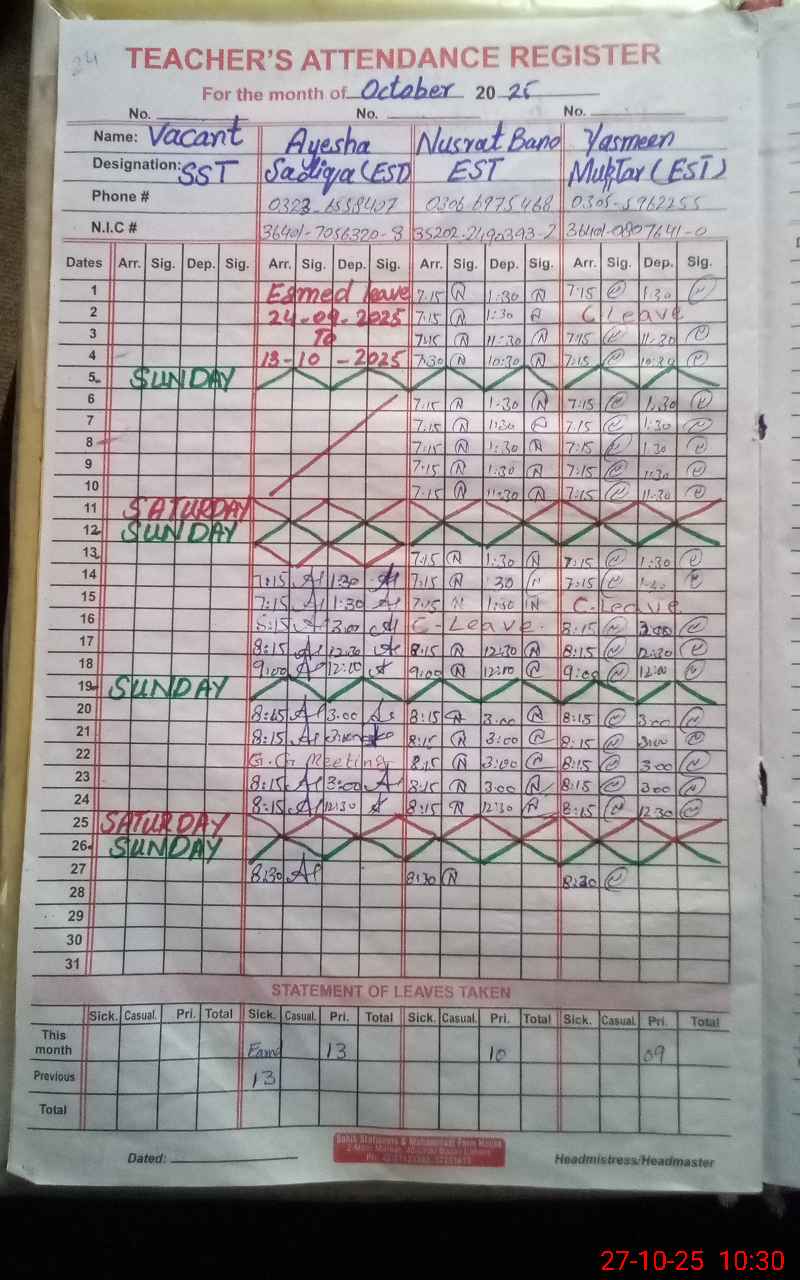 24
TEACHER'S ATTENDANCE REGISTER
For the month of October 2025
No. No. No.
Name: Vacant Ayesha Nusrat Bano Yasmeen
Designation: SST Sadiqa (EST) EST Muktar (EST)
Phone # 0306-6975468 0305-5962255
N.I.C # 36401-7056320-8 36401-0807641-0
Dates Arr. Sig. Dep. Sig. Arr. Sig. Dep. Sig. Arr. Sig. Dep. Sig. Arr. Sig. Dep. Sig.
1 Earned leave 7:15 1:30 7:15 1:30
2 24-09-2025 7:15 1:30 C Leave
3 To 7:15 11:30 7:15 11:30
4 13-10-2025 7:30 10:30 7:15 10:30
5 SUNDAY
6 7:15 1:30 7:15 1:30
7 7:15 1:30 7:15 1:30
8 7:15 1:30 7:15 1:30
9 7:15 1:30 7:15 1:30
10 7:15 11:30 7:15 11:30
11 SATURDAY
12 SUNDAY
13 7:15 1:30 7:15 1:30
14 7:15 1:30 7:15 30 7:15
15 7:15 1:30 7:15 1:30 C-Leave
16 8:15 3:00 C-Leave. 8:15 3:00
17 8:15 12:30 8:15 12:30 8:15 12:30
18 9:00 12:00 9:00 12:00 9:00 12:00
19 SUNDAY
20 8:15 3:00 8:15 3:00 8:15 3:00
21 8:15 8:15 3:00 8:15 3:00
22 G.G Meeting 8:15 3:00 8:15 3:00
23 8:15 3:00 8:15 3:00 8:15 3:00
24 8:15 12:30 8:15 12:30 8:15 12:30
25 SATURDAY
26 SUNDAY
27 8:30 8:30 8:30
28
29
30
31
STATEMENT OF LEAVES TAKEN
Sick. Casual. Pri. Total Sick. Casual. Pri. Total Sick. Casual. Pri. Total Sick. Casual. Pri. Total
This month 13 10 09
Previous 13
Total
Dated: Headmistress/Headmaster
27-10-25 10:30